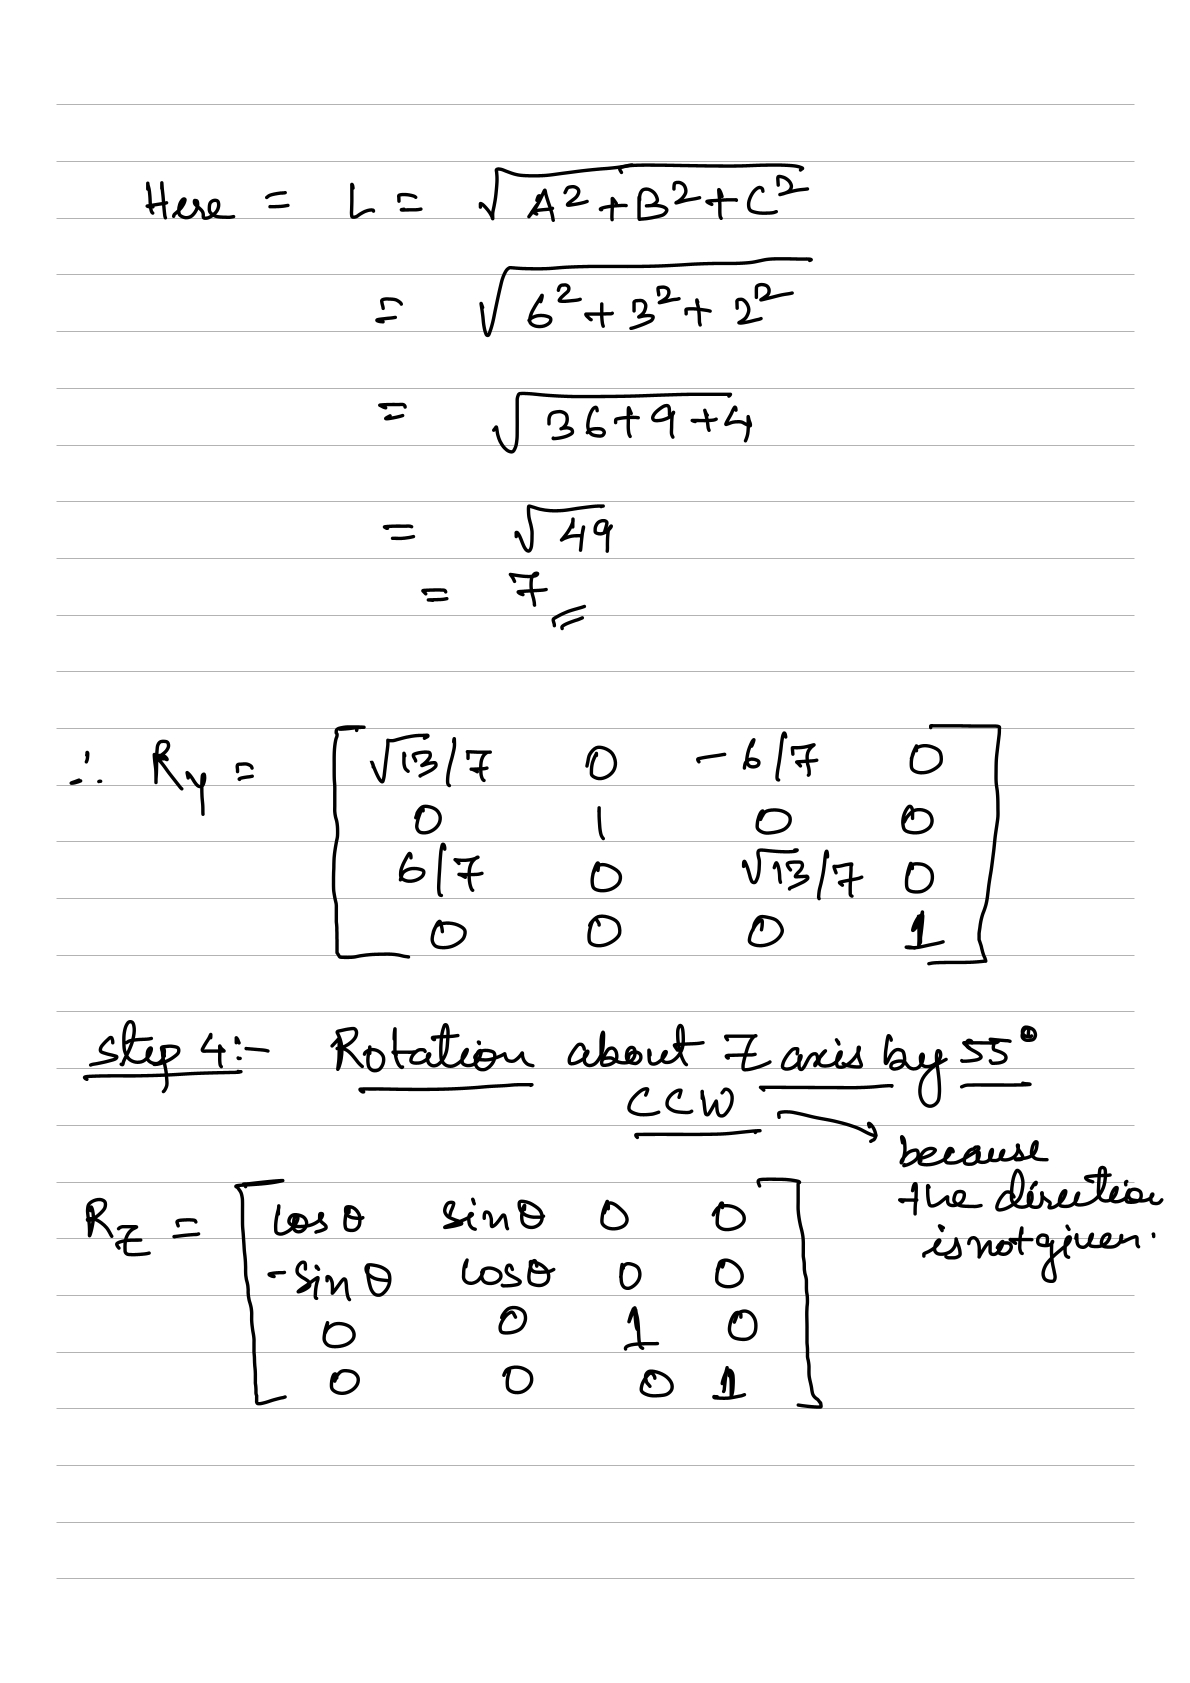 Here = L = √A²+B²+C²
= √6²+3²+2²
= √36+9+4
= √49
= 7
∴ Ry = [ √13/7 0 -6/7 0
0 1 0 0
6/7 0 √13/7 0
0 0 0 1 ]
step 4:- Rotation about Z axis by 55°
CCW → because
the direction
is not given.
RZ = [ cosθ sinθ 0 0
-sinθ cosθ 0 0
0 0 1 0
0 0 0 1 ]